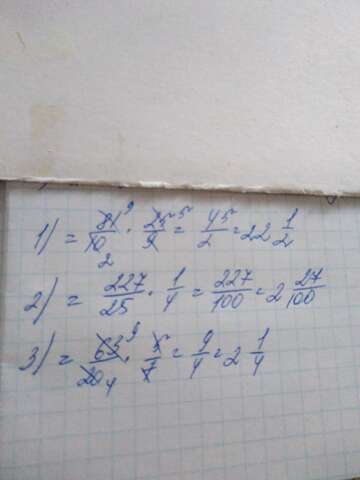 1) = 81/10 9 2 · 25/9 5 = 45/2 = 22 1/2
2) = 227/25 · 1/4 = 227/100 = 2 27/100
3) = 63/20 9 4 · 5/7 = 9/4 = 2 1/4